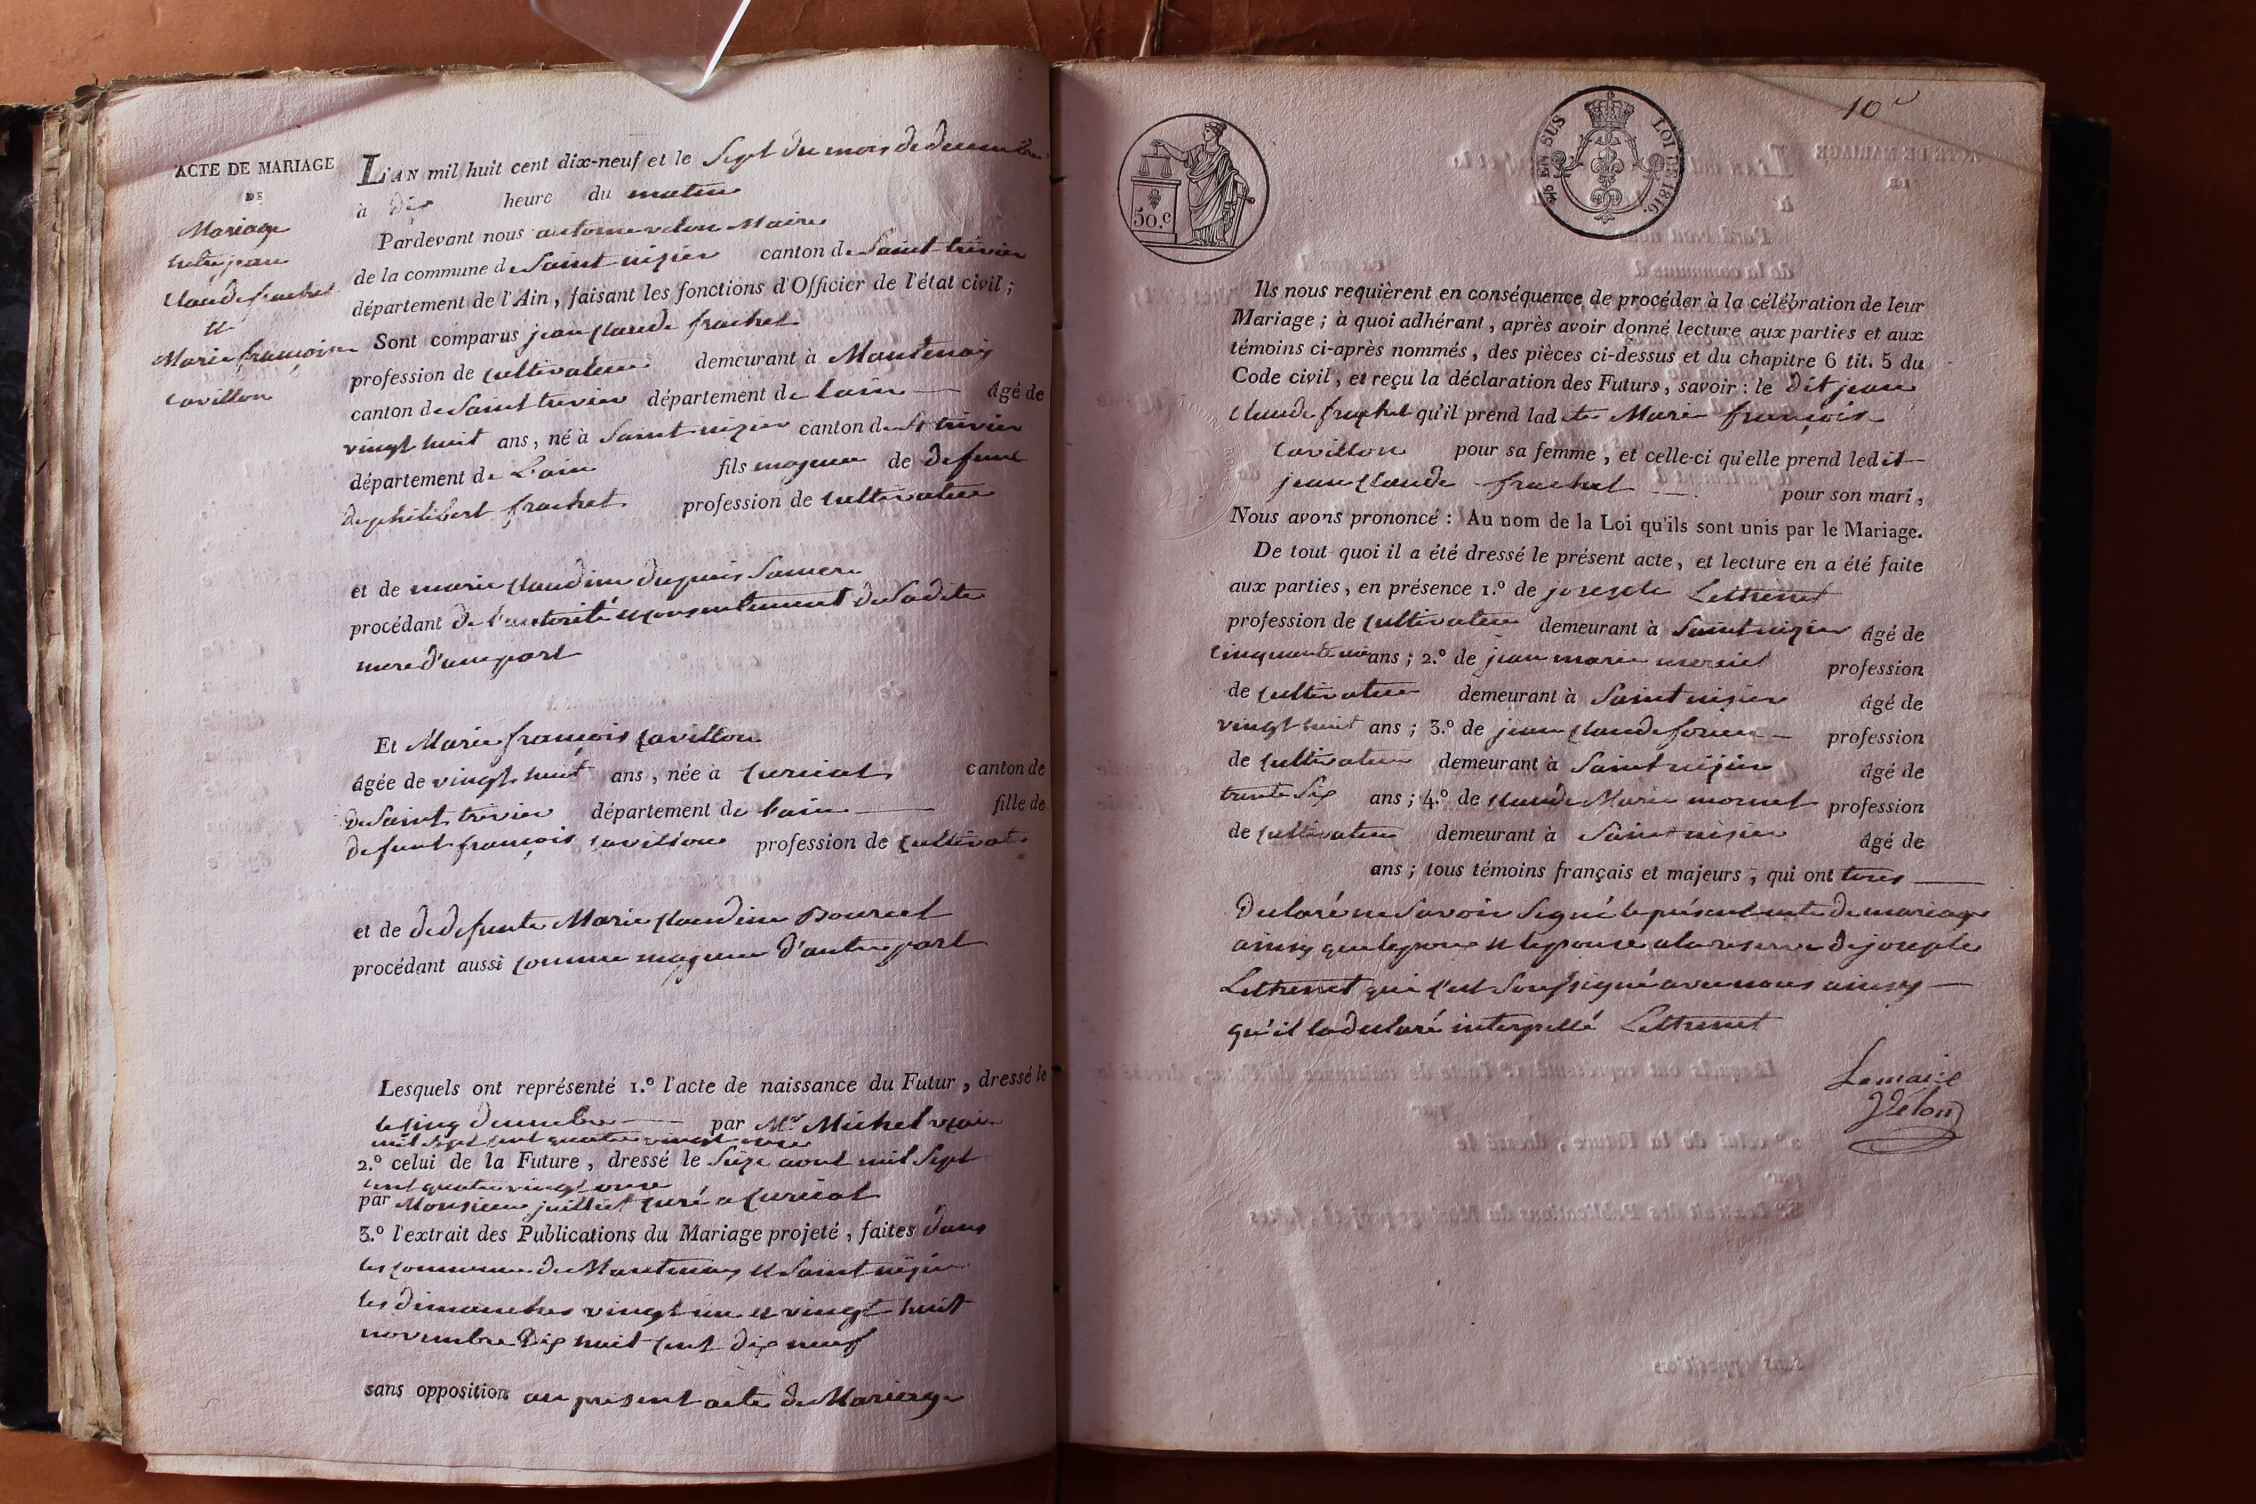 ACTE DE MARIAGE
DE
Mariage
entre jean
Claude frachet
et
Marie françoise
Cavillon
L'AN mil huit cent dix-neuf et le Sept du mois de decembre
à dix heure du matin
Pardevant nous antoine velon Maire
de la commune de Saint nizier canton de Saint trivier
département de l'Ain, faisant les fonctions d'Officier de l'état civil;
Sont comparus jean Claude frachet
profession de Cultivateur demeurant à Mantenay
canton de Saint trivier département de lain âgé de
vingt huit ans, né à Saint nizier canton de St trivier
département de L'ain fils majeur de defunt
de philibert frachet profession de Cultivateur
et de marie Claudine dupuis Sa mere
procédant de l'autorité et consentement de Sadite
mere d'une part
Et Marie françois Cavillon
âgée de vingt huit ans, née à Curciat canton de
de Saint trivier département de lain fille de
defunt françois Cavillon profession de Cultivat
et de de defunte Marie Claudine Bourcet
procédant aussi comme majeure d'autre part
Lesquels ont représenté 1.º l'acte de naissance du Futur, dressé le
le Cinq decembre par Mr Michel vicaire
mil Sept Cent quatre vingt onze
2.º celui de la Future, dressé le Seize aout mil Sept
Cent quatre vingt onze
par Monsieur juillet Curé a Curciat
3.º l'extrait des Publications du Mariage projeté, faites dans
les commune de Mantenay et Saint nizier
les dimanches vingt un et vingt huit
novembre Dix huit Cent dix neuf
sans opposition au present acte de Mariage
10e
EN SUS
LOI DE 1816.
50.c
Ils nous requièrent en conséquence de procéder à la célébration de leur
Mariage; à quoi adhérant, après avoir donné lecture aux parties et aux
témoins ci-après nommés, des pièces ci-dessus et du chapitre 6 tit. 5 du
Code civil, et reçu la déclaration des Futurs, savoir: le dit jean
Claude frachet qu'il prend lad ite Marie françois
Cavillon pour sa femme, et celle-ci qu'elle prend ledit
jean Claude frachet pour son mari,
Nous avons prononcé: Au nom de la Loi qu'ils sont unis par le Mariage.
De tout quoi il a été dressé le présent acte, et lecture en a été faite
aux parties, en présence 1.º de joseph Lethenet
profession de Cultivateur demeurant à Saint nizier âgé de
Cinquante ans; 2.º de jean marie profession
de Cultivateur demeurant à Saint nizier âgé de
vingt huit ans; 3.º de jean Claude profession
de Cultivateur demeurant à Saint nizier âgé de
trente Six ans; 4.º de Claude Marie mornet profession
de Cultivateur demeurant à Saint nizier âgé de
ans; tous témoins français et majeurs, qui ont tous
declaré ne Savoir Signé le présent acte de mariage
ainsy que lepoux et lepouse a la reserve de joseph
Lethenet qui c'est Soussigné avec nous ainsy
qu'il la declaré interpellé Lethenet
Lemaire
Velon